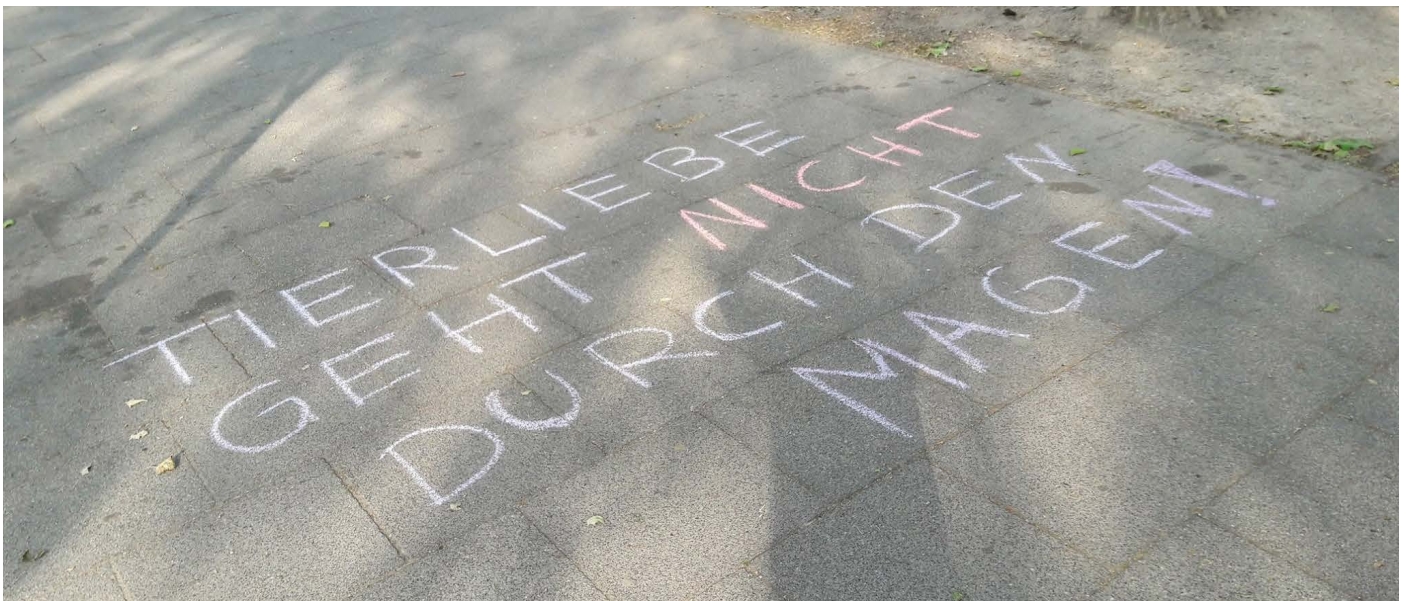 TIERLIEBE
GEHT NICHT
DURCH DEN
MAGEN!